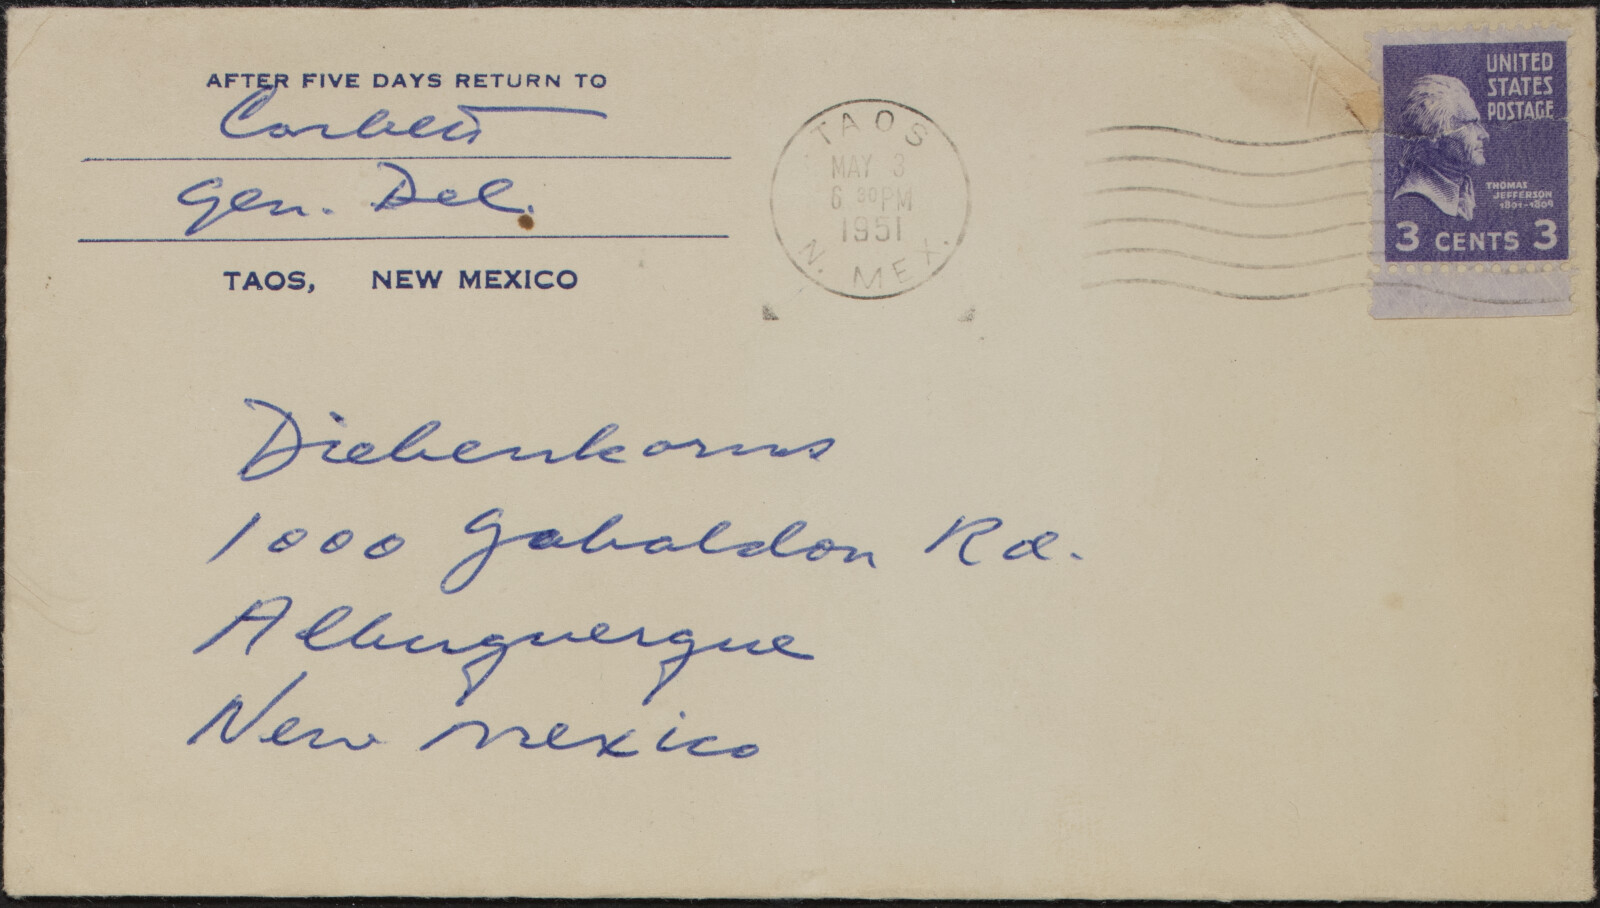 AFTER FIVE DAYS RETURN TO
Corbett
Gen. Del.
TAOS, NEW MEXICO
TAOS
MAY 3
6 30 PM
1951
N. MEX.
UNITED
STATES
POSTAGE
THOMAS
JEFFERSON
1801-1809
3 CENTS 3
Diebenkorns
1000 Gabaldon Rd.
Albuquerque
New Mexico